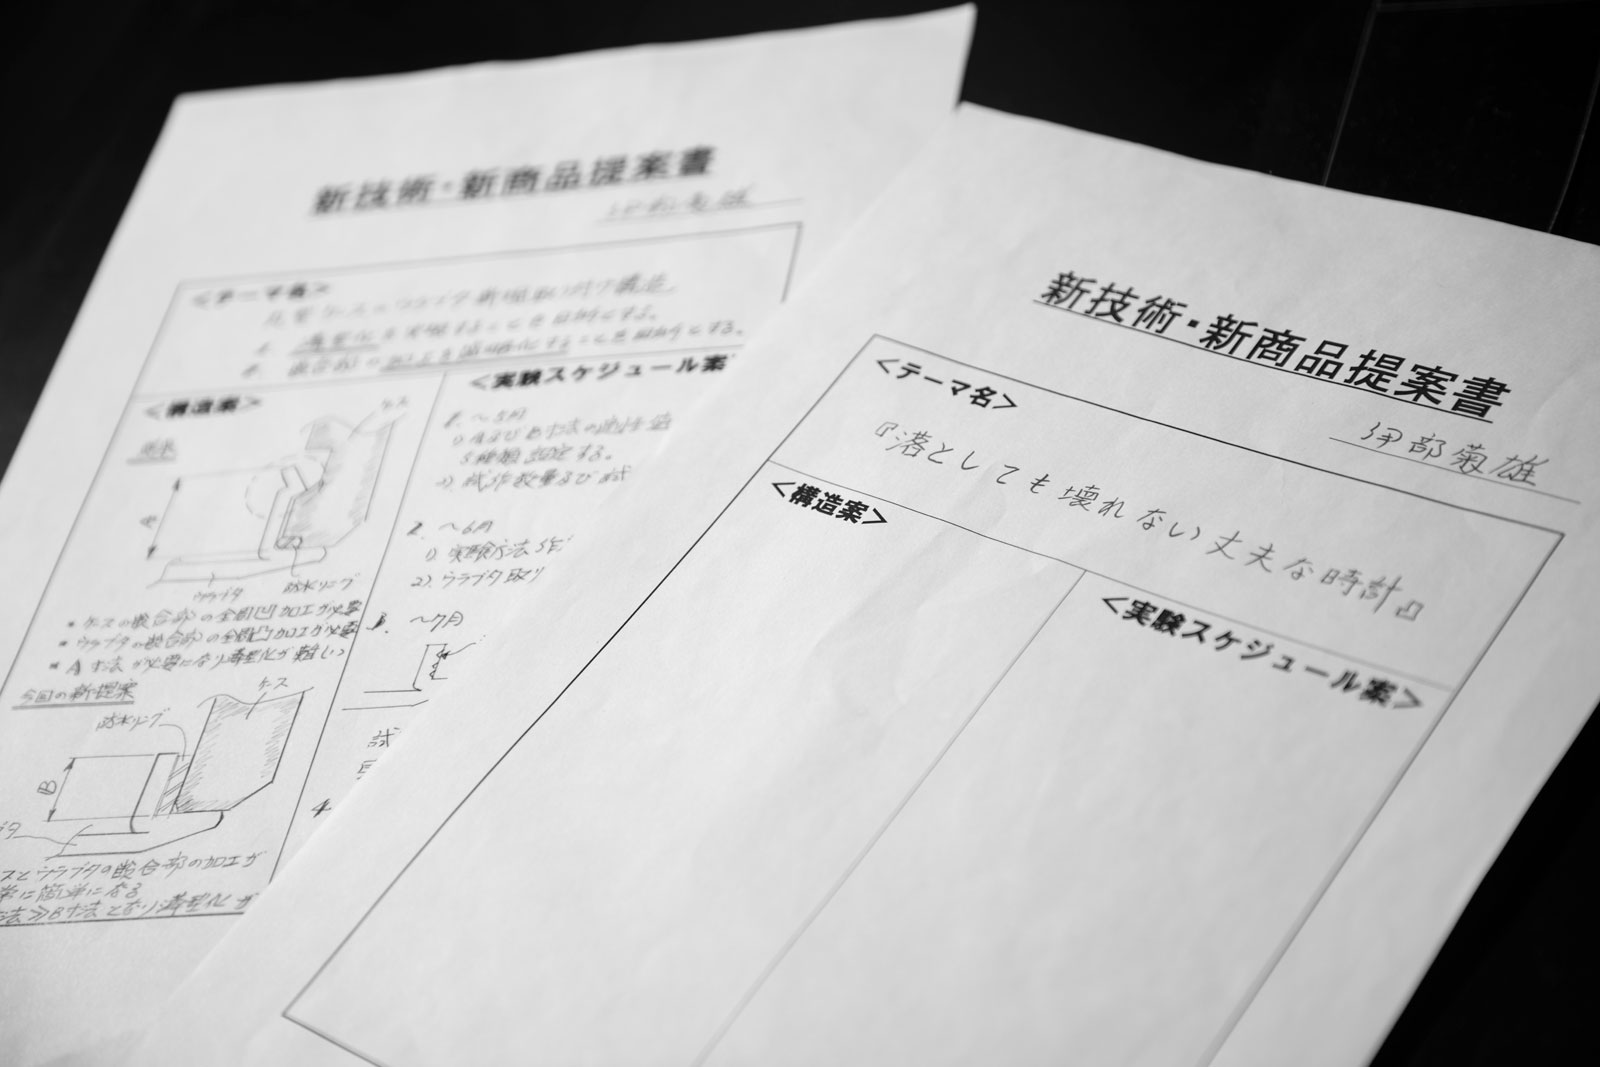 新技術・新商品提案書
<テーマ名>
を目的とする。
を簡略化することを目的とする。
<構造案>
ケース
A
ウラブタ
防水リング
・ケースの嵌合部の全周凹加工が必要
・ウラブタの嵌合部の全周凸加工が必要
・A寸法が必要になり薄型化が難しい
今回の新提案
ケース
防水リング
B
ブタ
スとウラブタの嵌合部の加工が
常に簡単になる
寸法≫B寸法となり薄型化が
<実験スケジュール案
1. ～5月
1) A及びB寸法の
5種類設定する。
2) 試作数量及び
2. ～6月
1) 実験方法
2). ウラブタ取り
3. ～7月
試
4
新技術・新商品提案書
伊部菊雄
<テーマ名>
『落としても壊れない丈夫な時計』
<構造案>
<実験スケジュール案>